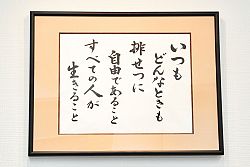 いつも
どんなときも
排せつに
自由であること
すべての人が
生きること